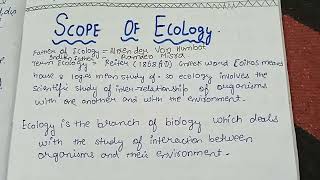 SCOPE OF ECOLOGY.
Father of Ecology = Alexender Von Humbot
Indian Father = Ramdeo Misra
Term Ecology = Reiter (1868 AD) Greek word Eoikos means
house & logos mean study of. so ecology involves the
scientific study of inter-relationship of organisms
with one another and with the environment.
Ecology is the branch of biology which deals
with the study of interaction between
organisms and their environment.